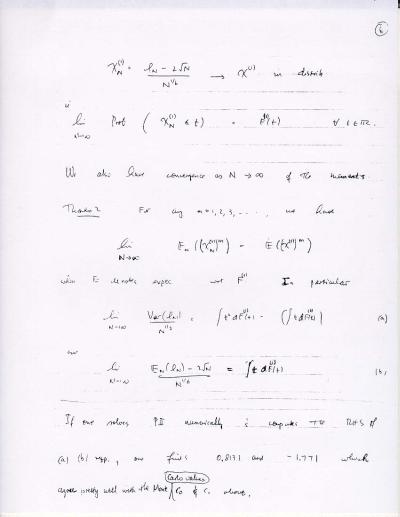 6
χ_N^(1) = (l_N − 2√N) / N^{1/6} → χ^(1) in distrib
ie
lim_{N→∞} Prob ( χ_N^(1) ≤ t ) = F^(1)(t) ∀ t ∈ R.
We also have convergence as N → ∞ of the moments.
Theorem 2 For any m = 1, 2, 3, ...., we have
lim_{N→∞} E_N ((χ_N^(1))^m) = E ((χ^(1))^m)
when E denotes expec wrt F^(1) In particular
lim_{N→∞} Var(l_N) / N^{1/3} = ∫t² dF^(1)(t) − (∫t dF^(1)(t))² (a)
and
lim_{N→∞} (E_N(l_N) − 2√N) / N^{1/6} = ∫t dF^(1)(t) (b)
If one solves PII numerically & computes the RHS of
(a) (b) resp., one finds 0.8131 and −1.771 which
agree pretty well with the Monte Carlo values c₀ & c₁ above.